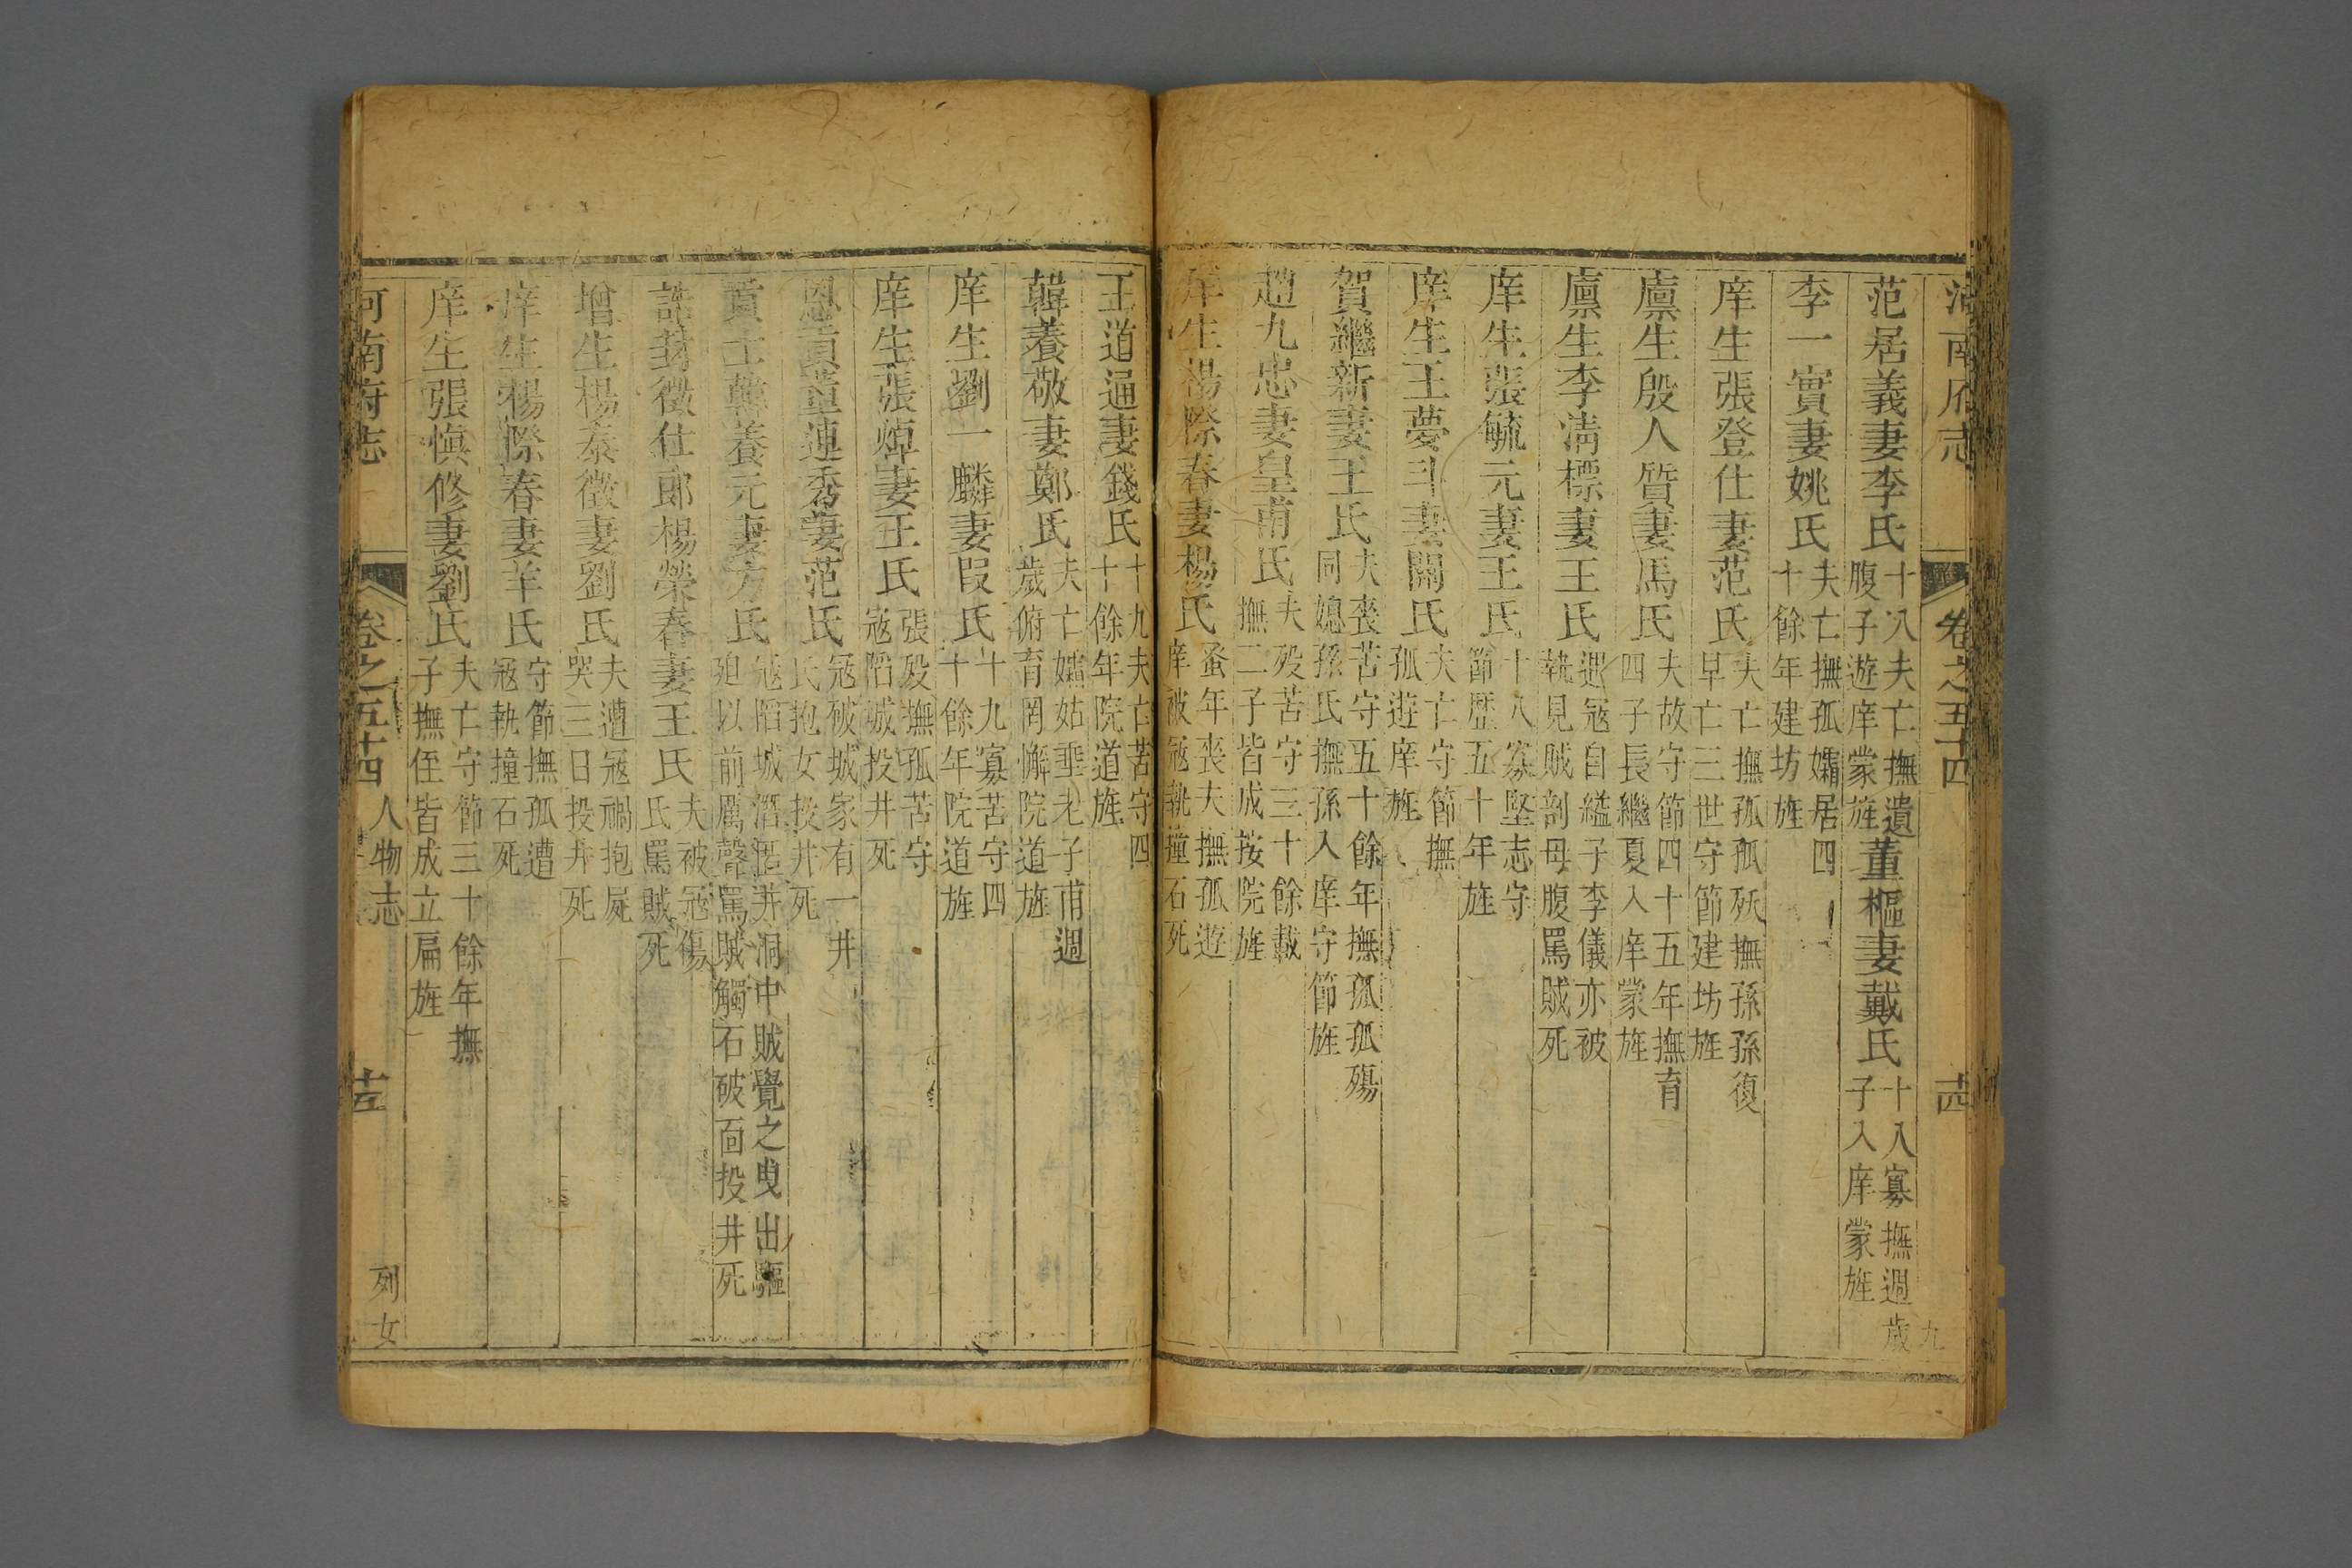 河南府志 卷之五十四 十四
范居義妻李氏 十八夫亡撫遺腹子遊庠蒙旌 董樞妻戴氏 十八寡撫週歲子入庠蒙旌
李一實妻姚氏 夫亡撫孤孀居四十餘年建坊旌
庠生張登仕妻范氏 夫亡撫孤孤殀撫孫孫復早亡三世守節建坊旌
廩生殷人質妻馮氏 夫故守節四十五年撫育四子長繼夏入庠蒙旌
廩生李淸標妻王氏 遇冦自縊子李儀亦被執見賊剖母腹罵賊死
庠生張毓元妻王氏 十八寡堅志守節歷五十年旌
庠生王夢斗妻關氏 夫亡守節撫孤遊庠旌
賀繼新妻王氏 夫喪苦守五十餘年撫孤孤殤同媳孫氏撫孫入庠守節旌
趙九忠妻皇甫氏 夫歿苦守三十餘載撫二子皆成按院旌
庠生楊際春妻楊氏 蚤年喪夫撫孤遊庠被冦執撞石死
王道通妻錢氏 十九夫亡苦守四十餘年院道旌
韓養敬妻鄭氏 夫亡孀姑垂老子甫週歲俯育罔懈院道旌
庠生劉一麟妻段氏 十九寡苦守四十餘年院道旌
庠生張焯妻王氏 張歿撫孤苦守冦陷城投井死
恩貢董連秀妻范氏 冦破城家有一井氏抱女投井死
貢士韓養元妻方氏 冦陷城潛匿井洞中賊覺之曳出驅廹以前厲聲罵賊觸石破面投井死
誥封徵仕郎楊榮春妻王氏 夫被冦傷氏罵賊死
增生楊泰徵妻劉氏 夫遭冦禍抱屍哭三日投井死
庠生楊際春妻羊氏 守節撫孤遭冦執撞石死
庠生張愼修妻劉氏 夫亡守節三十餘年撫子撫侄皆成立扁旌
河南府志 卷之五十四 人物志 十五 列女